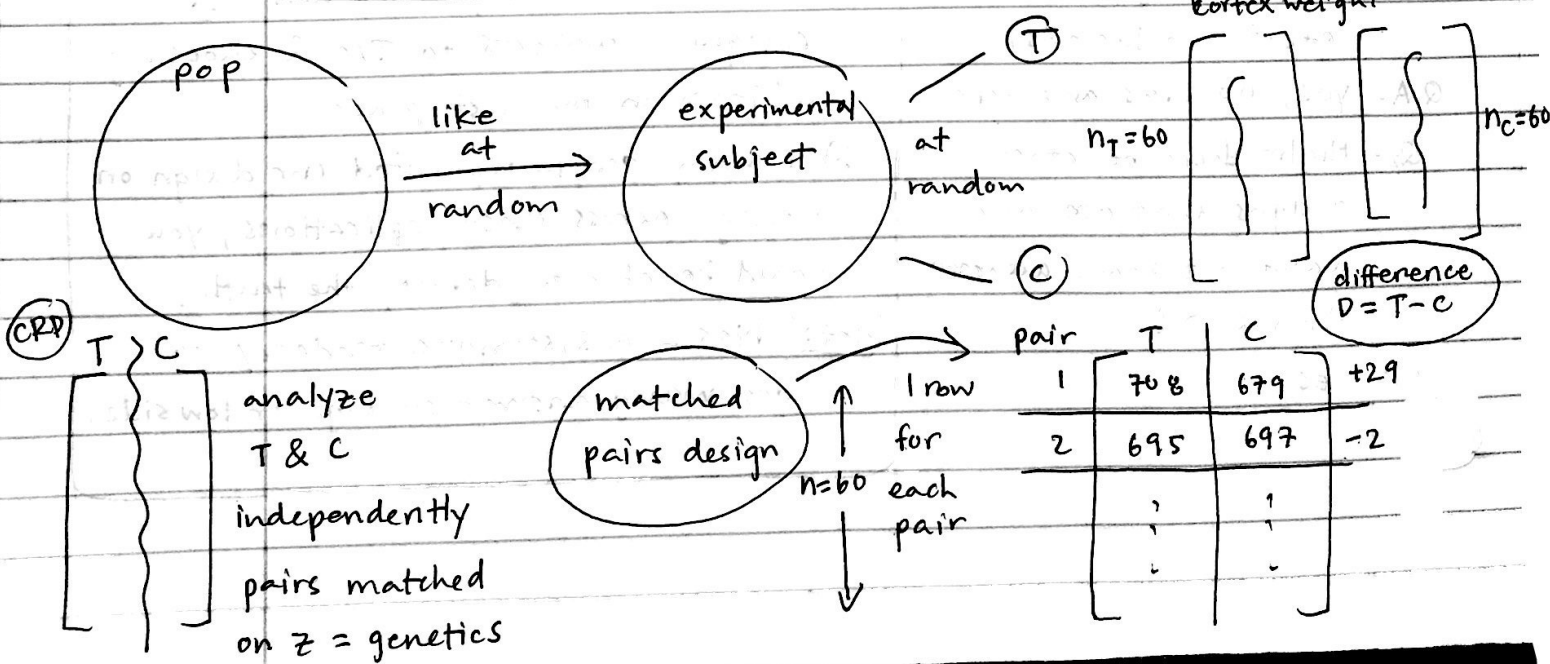 cortex weight
pop
like
at
random
experimental
subject
at
random
T
C
n_T=60
n_C=60
difference
D = T - C
CRD
T C
analyze
T & C
independently
pairs matched
on z = genetics
matched
pairs design
n=60
1 row
for
each
pair
pair T C
1 708 679 +29
2 695 697 -2